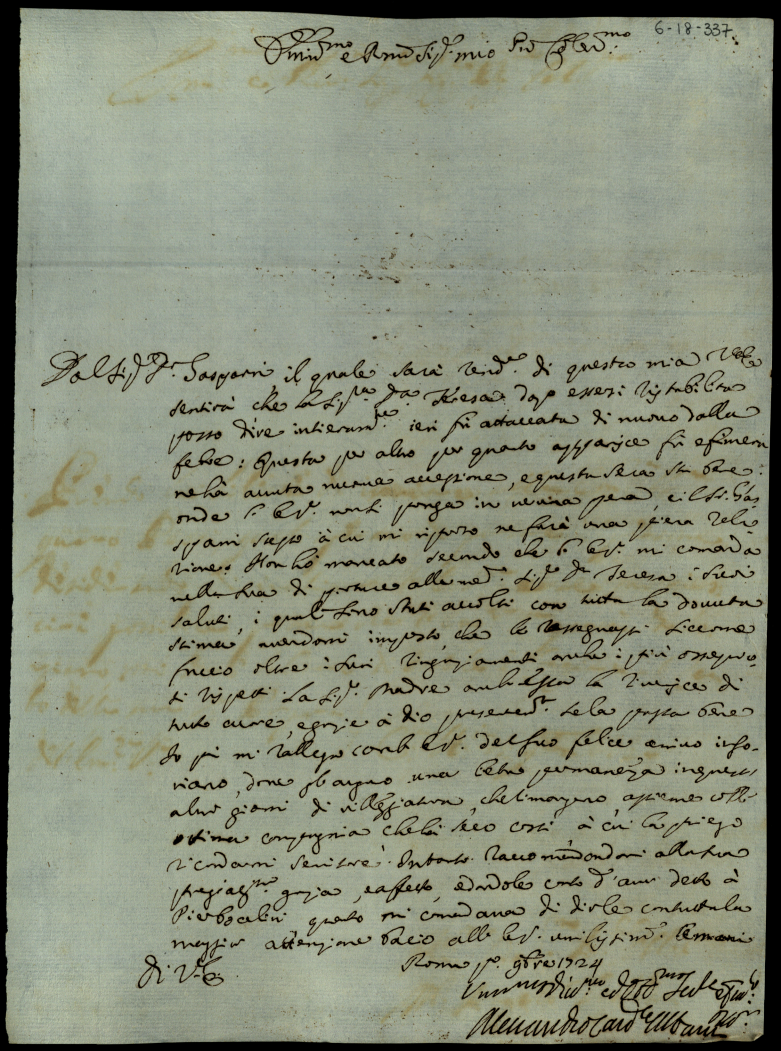 6-18-337.
Illmo e Rmo Sigr. mio Prōn Colmo
Dal Sigr. Dr. Gasparri, il quale sarà di questa mia
sentirà che la Sigra. Da. Teresa dopo essersi ristabilita
posso dire interamte. ieri fù attaccata di nuovo dalla
febre: Questa per altro per quanto apparisce fù efimera
ne hà avuta nuova accessione, e questa sera stà bene:
onde non si ponga in veruna pena, e il Sr. Gas
parri stesso à cui mi riporto ne farà una piena rela
zione. Non hò mancato secondo che mi comanda
nella sua di portare alla med. Sigra. Da. Teresa i suoi
saluti, i quali sono stati accolti con tutta la dovuta
stima avendomi imposto, che le rassegnassi siccome
faccio oltre i suoi ringraziamenti anche i più ossequio
si rispetti. La Sigra. Madre anch'essa la riverisce di
tutto cuore, e grazie à Dio se la passa bene
Io poi mi rallegro del suo felice arrivo
dove gl'auguro una lieta permanenza in questi
altri giorni di villeggiatura, che rimangono assieme coll'
ottima compagnia che hà seco costì à cui la priego
ricordarmi servitore. Intanto raccomandandomi alla sua
grazia, e affetto, e dandole conto d'aver detto à
Pierbocalini quanto mi comandava di dirle con tutta la
maggior attenzione bacio alle umilissimte. le mani
Roma po. 9bre 1724
Di V.
Alessandro Card. Albani